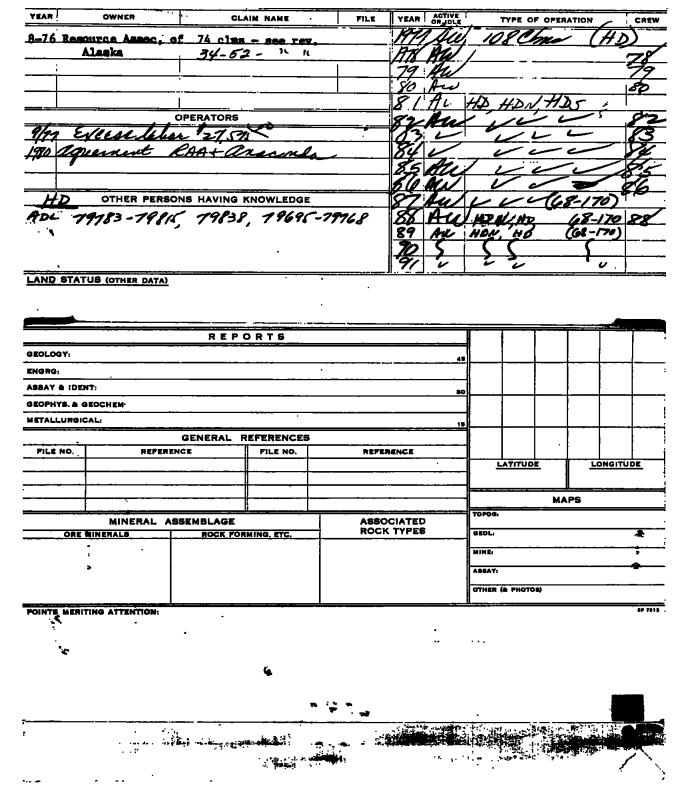 YEAR OWNER CLAIM NAME FILE YEAR ACTIVE OR IDLE TYPE OF OPERATION CREW
8-76 Resource Assoc. of 74 clms - see rev.
Alaska 34-52 - " "
1977 AW 108 Clms (HD)
78 AW 78
79 AW 79
80 AW 80
81 AW HD, HDN, HDS
OPERATORS
82 AW ✓ ✓ ✓ 82
9/77 Excess labor $27,575.00
83 ✓ ✓ ✓ ✓ 83
1980 agreement RAA + Anaconda
84 ✓ ✓ ✓ ✓ 84
85 AW ✓ ✓ ✓ 85
86 AW ✓ ✓ 86
HD OTHER PERSONS HAVING KNOWLEDGE
87 AW ✓ ✓ (68-170)
ADL 79783-79815, 79838, 79695-79768
88 AW HDN, HD 68-170 88
89 AW HDN, HD (68-170)
90
91 ✓ ✓ ✓ ✓
LAND STATUS (OTHER DATA)
REPORTS
GEOLOGY: 45
ENGRG:
ASSAY & IDENT: 30
GEOPHYS. & GEOCHEM:
METALLURGICAL: 15
GENERAL REFERENCES
FILE NO. REFERENCE FILE NO. REFERENCE
LATITUDE LONGITUDE
MAPS
MINERAL ASSEMBLAGE ASSOCIATED ROCK TYPES
ORE MINERALS ROCK FORMING, ETC.
TOPOG:
GEOL:
MINE:
ASSAY:
OTHER (& PHOTOS)
POINTS MERITING ATTENTION: SP 7913